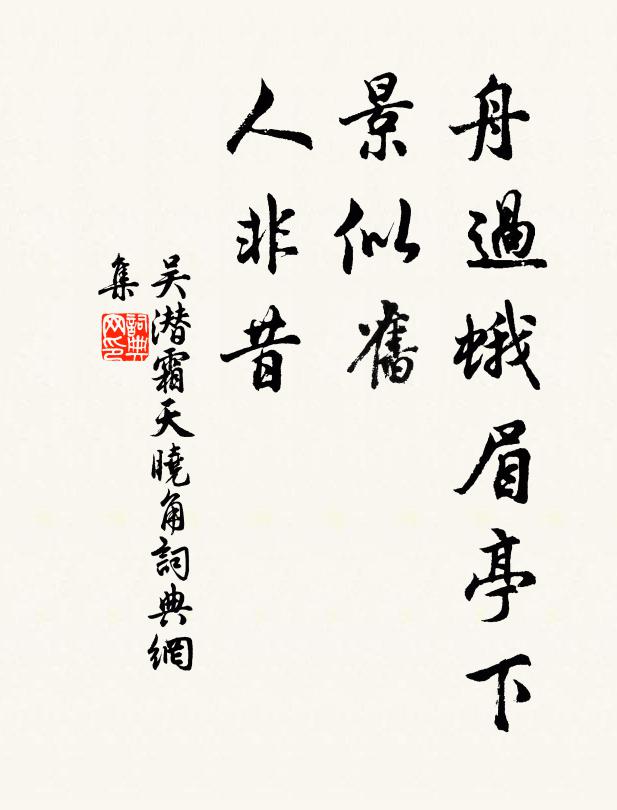 舟過蛾眉亭下
景似舊
人非昔
吴潜霜天曉角詞典網
集
詞典
网印